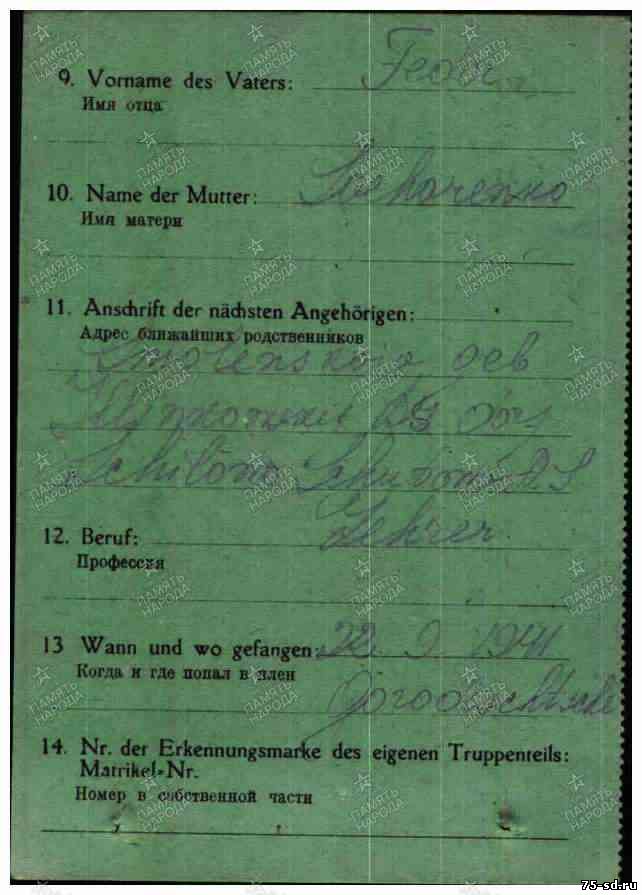 9. Vorname des Vaters: Fedor
Имя отца
10. Name der Mutter:
Имя матери
11. Anschrift der nächsten Angehörigen:
Адрес ближайших родственников
Smolenskaja geb
12. Beruf: Lehrer
Профессия
13 Wann und wo gefangen: 22. 9. 1941
Когда и где попал в плен
14. Nr. der Erkennungsmarke des eigenen Truppenteils:
Matrikel-Nr.
Номер в собственной части
ПАМЯТЬ НАРОДА
75-sd.ru